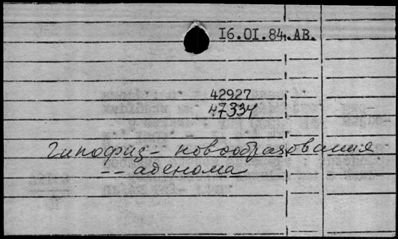 16.01.84.АВ.
42927
47334
Гипофиз - новообразования
-- аденома